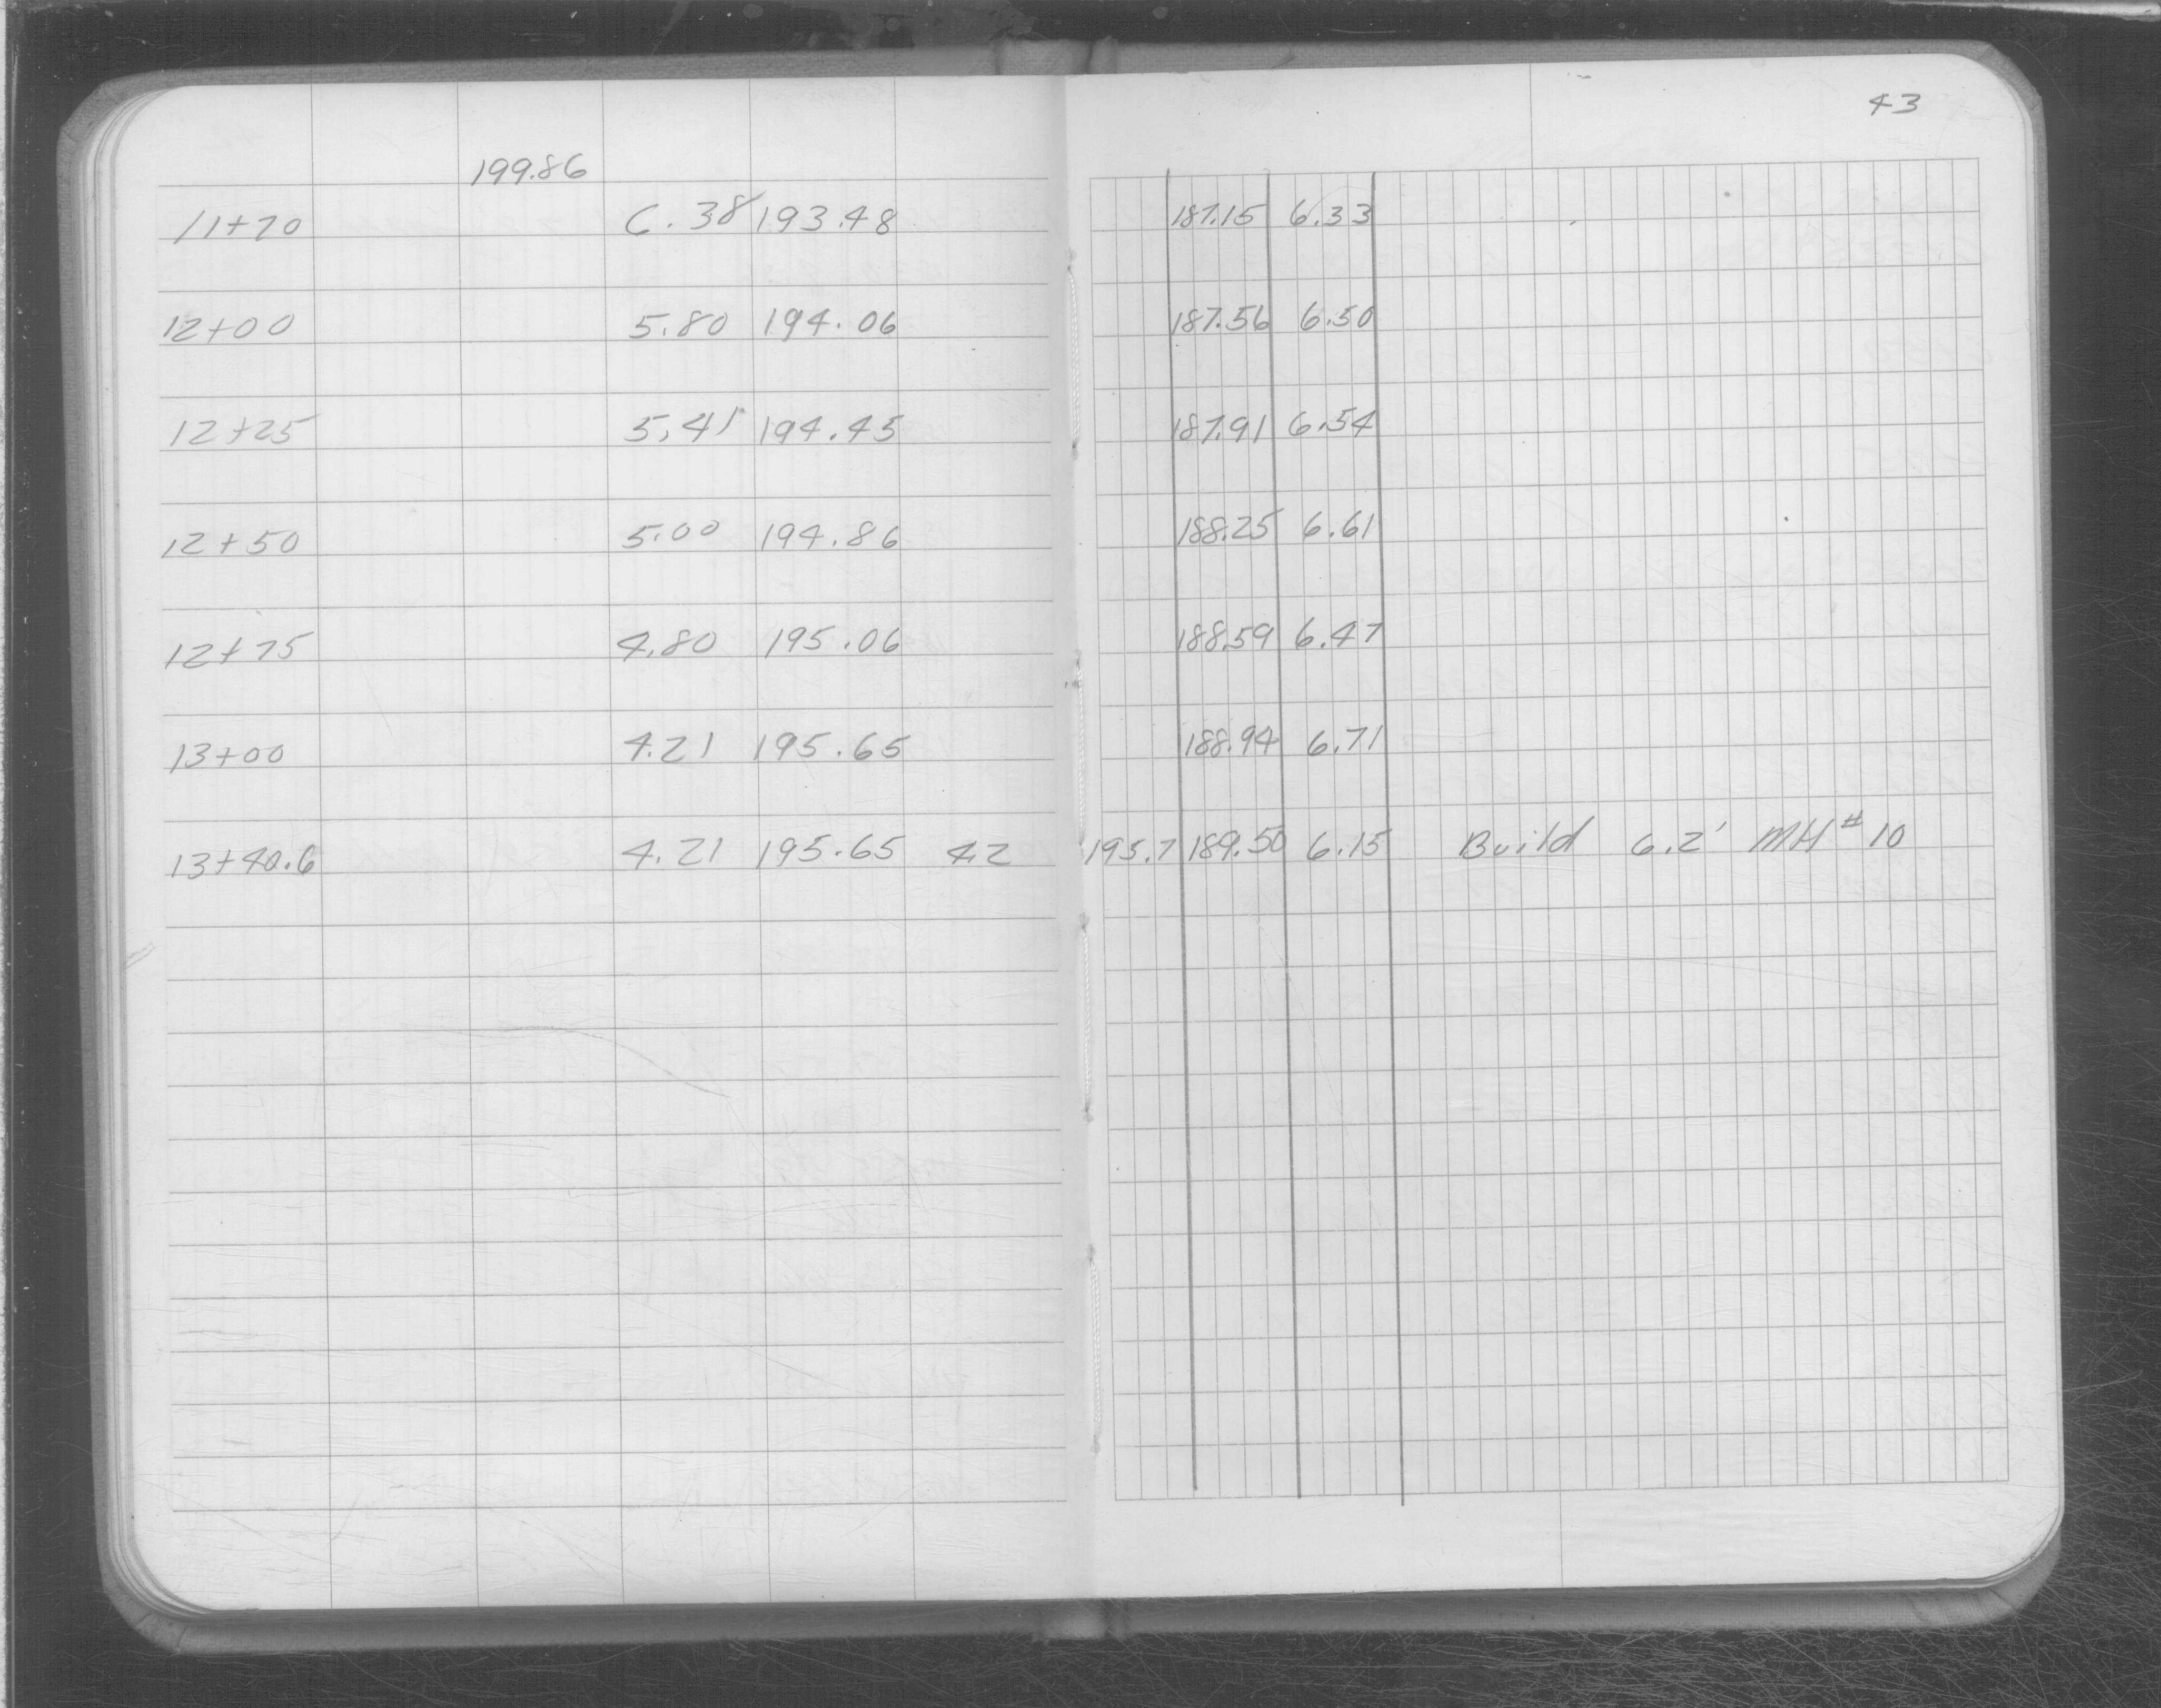 43
199.86
11+70 6.38 193.48 187.15 6.33
12+00 5.80 194.06 187.56 6.50
12+25 5.41 194.45 187.91 6.54
12+50 5.00 194.86 188.25 6.61
12+75 4.80 195.06 188.59 6.47
13+00 4.21 195.65 188.94 6.71
13+40.6 4.21 195.65 4.2 195.7 189.50 6.15 Build 6.2' MH #10